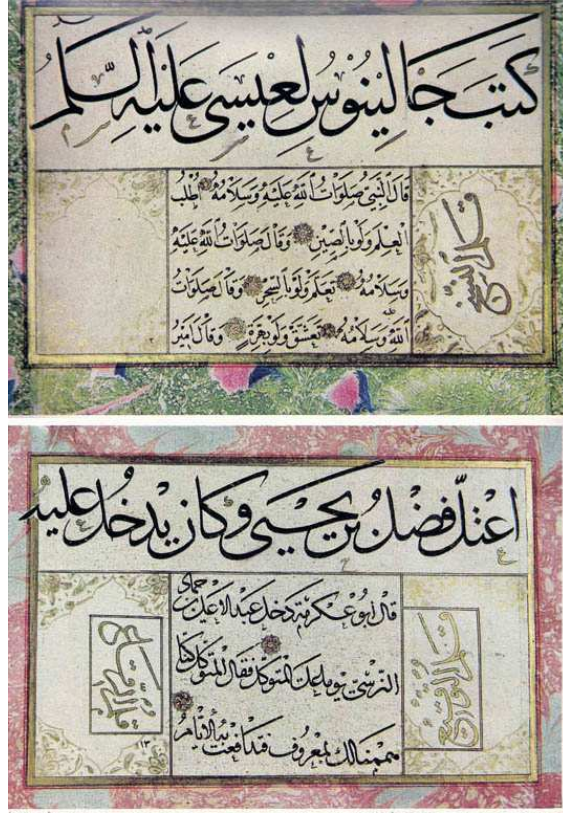 كَتَبَ جَالِينُوسُ لِعِيسَى عَلَيْهِ السَّلَمُ
قلم النسخ
قَالَ النَّبِيُّ صَلَوَاتُ اللَّهِ عَلَيْهِ وَسَلَامُهُ اُطْلُبُ
العِلمَ وَلَو بِالصِّينِ وَقَالَ صَلَوَاتُ اللَّهِ عَلَيْهِ
وَسَلَامُهُ تَعَلَّمْ وَلَو بِالسِّحْرِ وَقَالَ صَلَوَاتُ
اللَّهِ وَسَلَامُهُ تَعَشَّقْ وَلَو وَقَالَ اَمِيرُ
اعتلّ فضل بن يحيى وكان يدخل عليه
قلم التوقيع
قال أبو عكرمة دخل عبد الاعلى بن حماد
النرسي يوما على المتوكل فقال المتوكل كنا
هممنا لك بمعروف فتدافعت به الأيام
قلم الرقاع
١٣